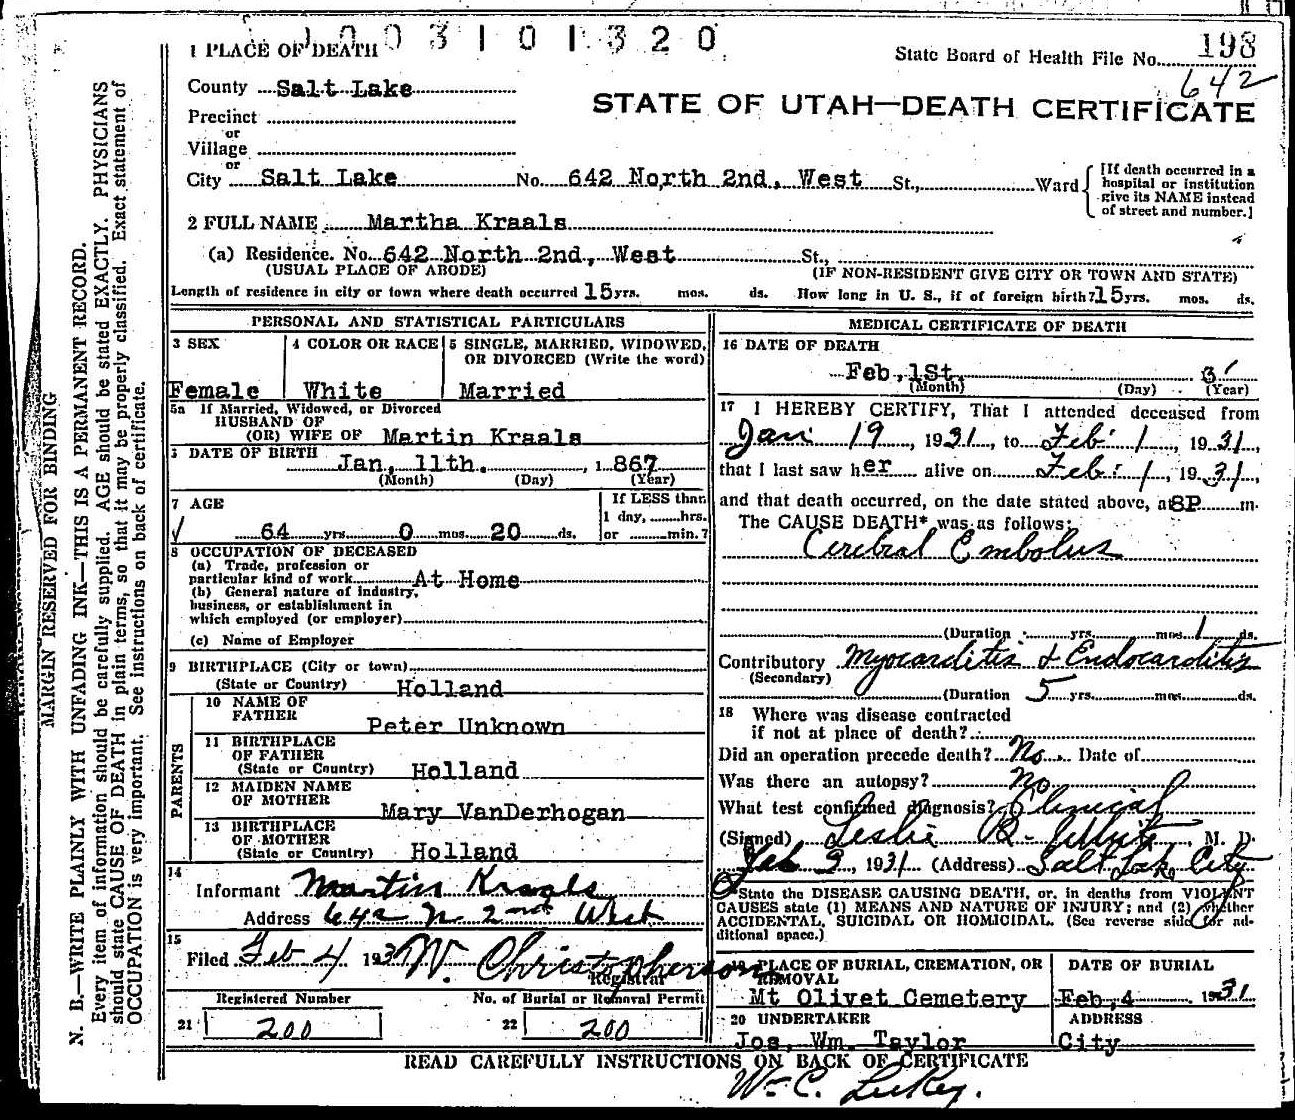 1003101320
1 PLACE OF DEATH
State Board of Health File No. 198
642
County Salt Lake
STATE OF UTAH—DEATH CERTIFICATE
Precinct
or
Village
or
City Salt Lake No. 642 North 2nd, West St., Ward
[If death occurred in a
hospital or institution
give its NAME instead
of street and number.]
2 FULL NAME Martha Kraals
(a) Residence. No. 642 North 2nd, West St.,
(USUAL PLACE OF ABODE) (IF NON-RESIDENT GIVE CITY OR TOWN AND STATE)
Length of residence in city or town where death occurred 15 yrs. mos. ds. How long in U. S., if of foreign birth? 15 yrs. mos. ds.
PERSONAL AND STATISTICAL PARTICULARS
3 SEX
Female
4 COLOR OR RACE
White
5 SINGLE, MARRIED, WIDOWED,
OR DIVORCED (Write the word)
Married
5a If Married, Widowed, or Divorced
HUSBAND OF
(OR) WIFE OF Martin Kraals
DATE OF BIRTH
Jan, 11th. , 1867
(Month) (Day) (Year)
7 AGE
64 yrs. 0 mos. 20 ds.
If LESS than
1 day, hrs.
or min.?
8 OCCUPATION OF DECEASED
(a) Trade, profession or
particular kind of work At Home
(b) General nature of industry,
business, or establishment in
which employed (or employer)
(c) Name of Employer
9 BIRTHPLACE (City or town)
(State or Country) Holland
PARENTS
10 NAME OF
FATHER Peter Unknown
11 BIRTHPLACE
OF FATHER
(State or Country) Holland
12 MAIDEN NAME
OF MOTHER Mary VanDerhogan
13 BIRTHPLACE
OF MOTHER
(State or Country) Holland
14
Informant Martin Kraals
Address 642 N 2nd West
15
Filed Feb 4 193 W. Christopherson
Registrar
Registered Number No. of Burial or Removal Permit
21 200 22 200
MEDICAL CERTIFICATE OF DEATH
16 DATE OF DEATH
Feb, 1St. 31
(Month) (Day) (Year)
17 I HEREBY CERTIFY, That I attended deceased from
Jan 19, 1931, to Feb 1, 1931,
that I last saw her alive on Feb 1, 1931,
and that death occurred, on the date stated above, a 8P m.
The CAUSE DEATH* was as follows:
Cerebral Embolus
(Duration yrs. mos. 1 ds.
Contributory Myocarditis & Endocarditis
(Secondary)
(Duration 5 yrs. mos. ds.
18 Where was disease contracted
if not at place of death?
Did an operation precede death? No Date of
Was there an autopsy? No
What test confirmed diagnosis? Clinical
(Signed) Leslie R. White, M. D.
Feb 3 1931 (Address) Salt Lake City
*State the DISEASE CAUSING DEATH, or, in deaths from VIOLENT
CAUSES state (1) MEANS AND NATURE OF INJURY; and (2) whether
ACCIDENTAL, SUICIDAL OR HOMICIDAL. (See reverse side for ad-
ditional space.)
PLACE OF BURIAL, CREMATION, OR
REMOVAL
Mt Olivet Cemetery
DATE OF BURIAL
Feb, 4 1931
20 UNDERTAKER
Jos, Wm. Taylor
ADDRESS
City
READ CAREFULLY INSTRUCTIONS ON BACK OF CERTIFICATE
Wm C.
MARGIN RESERVED FOR BINDING
N. B.—WRITE PLAINLY WITH UNFADING INK—THIS IS A PERMANENT RECORD.
Every item of information should be carefully supplied. AGE should be stated EXACTLY. PHYSICIANS
should state CAUSE OF DEATH in plain terms, so that it may be properly classified. Exact statement of
OCCUPATION is very important. See instructions on back of certificate.